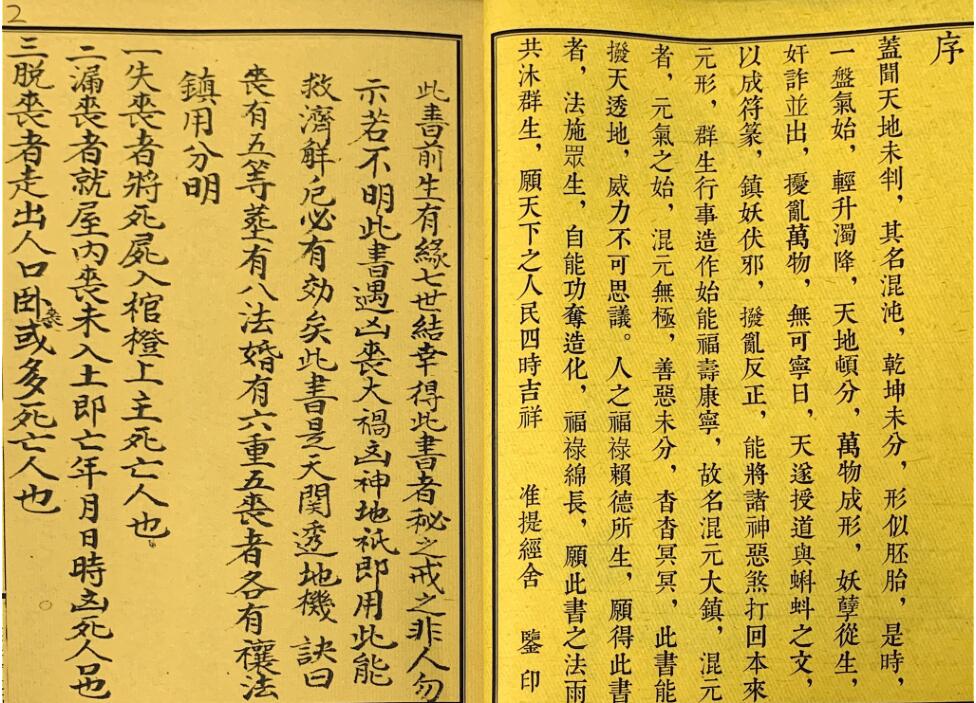 序
蓋聞天地未判，其名混沌，乾坤未分，形似胚胎，是時，
一盤氣始，輕升濁降，天地頓分，萬物成形，妖孽從生，
奸詐並出，擾亂萬物，無可寧日，天遂授道與蝌蚪之文，
以成符篆，鎮妖伏邪，撥亂反正，能將諸神惡煞打回本來
元形，群生行事造作始能福壽康寧，故名混元大鎮，混元
者，元氣之始，混元無極，善惡未分，杳杳冥冥，此書能
撥天透地，威力不可思議。人之福祿賴德所生，願得此書
者，法施眾生，自能功奪造化，福祿綿長，願此書之法雨
共沐群生，願天下之人民四時吉祥 准提經舍 鑒印
2
此書前生有緣七世結幸得此書者秘之戒之非人勿
示若不明此書遇凶喪大禍凶神地祇即用此能
救濟解厄必有効矣此書是天関透地機 訣曰
喪有五等葬有八法婚有六重五喪者各有禳法
鎮用分明
一失喪者將死屍入棺橙上主死亡人也
二漏喪者就屋內喪未入土即亡年月日時凶死人口也
三脱喪者走出人口卧喪或多死亡人也